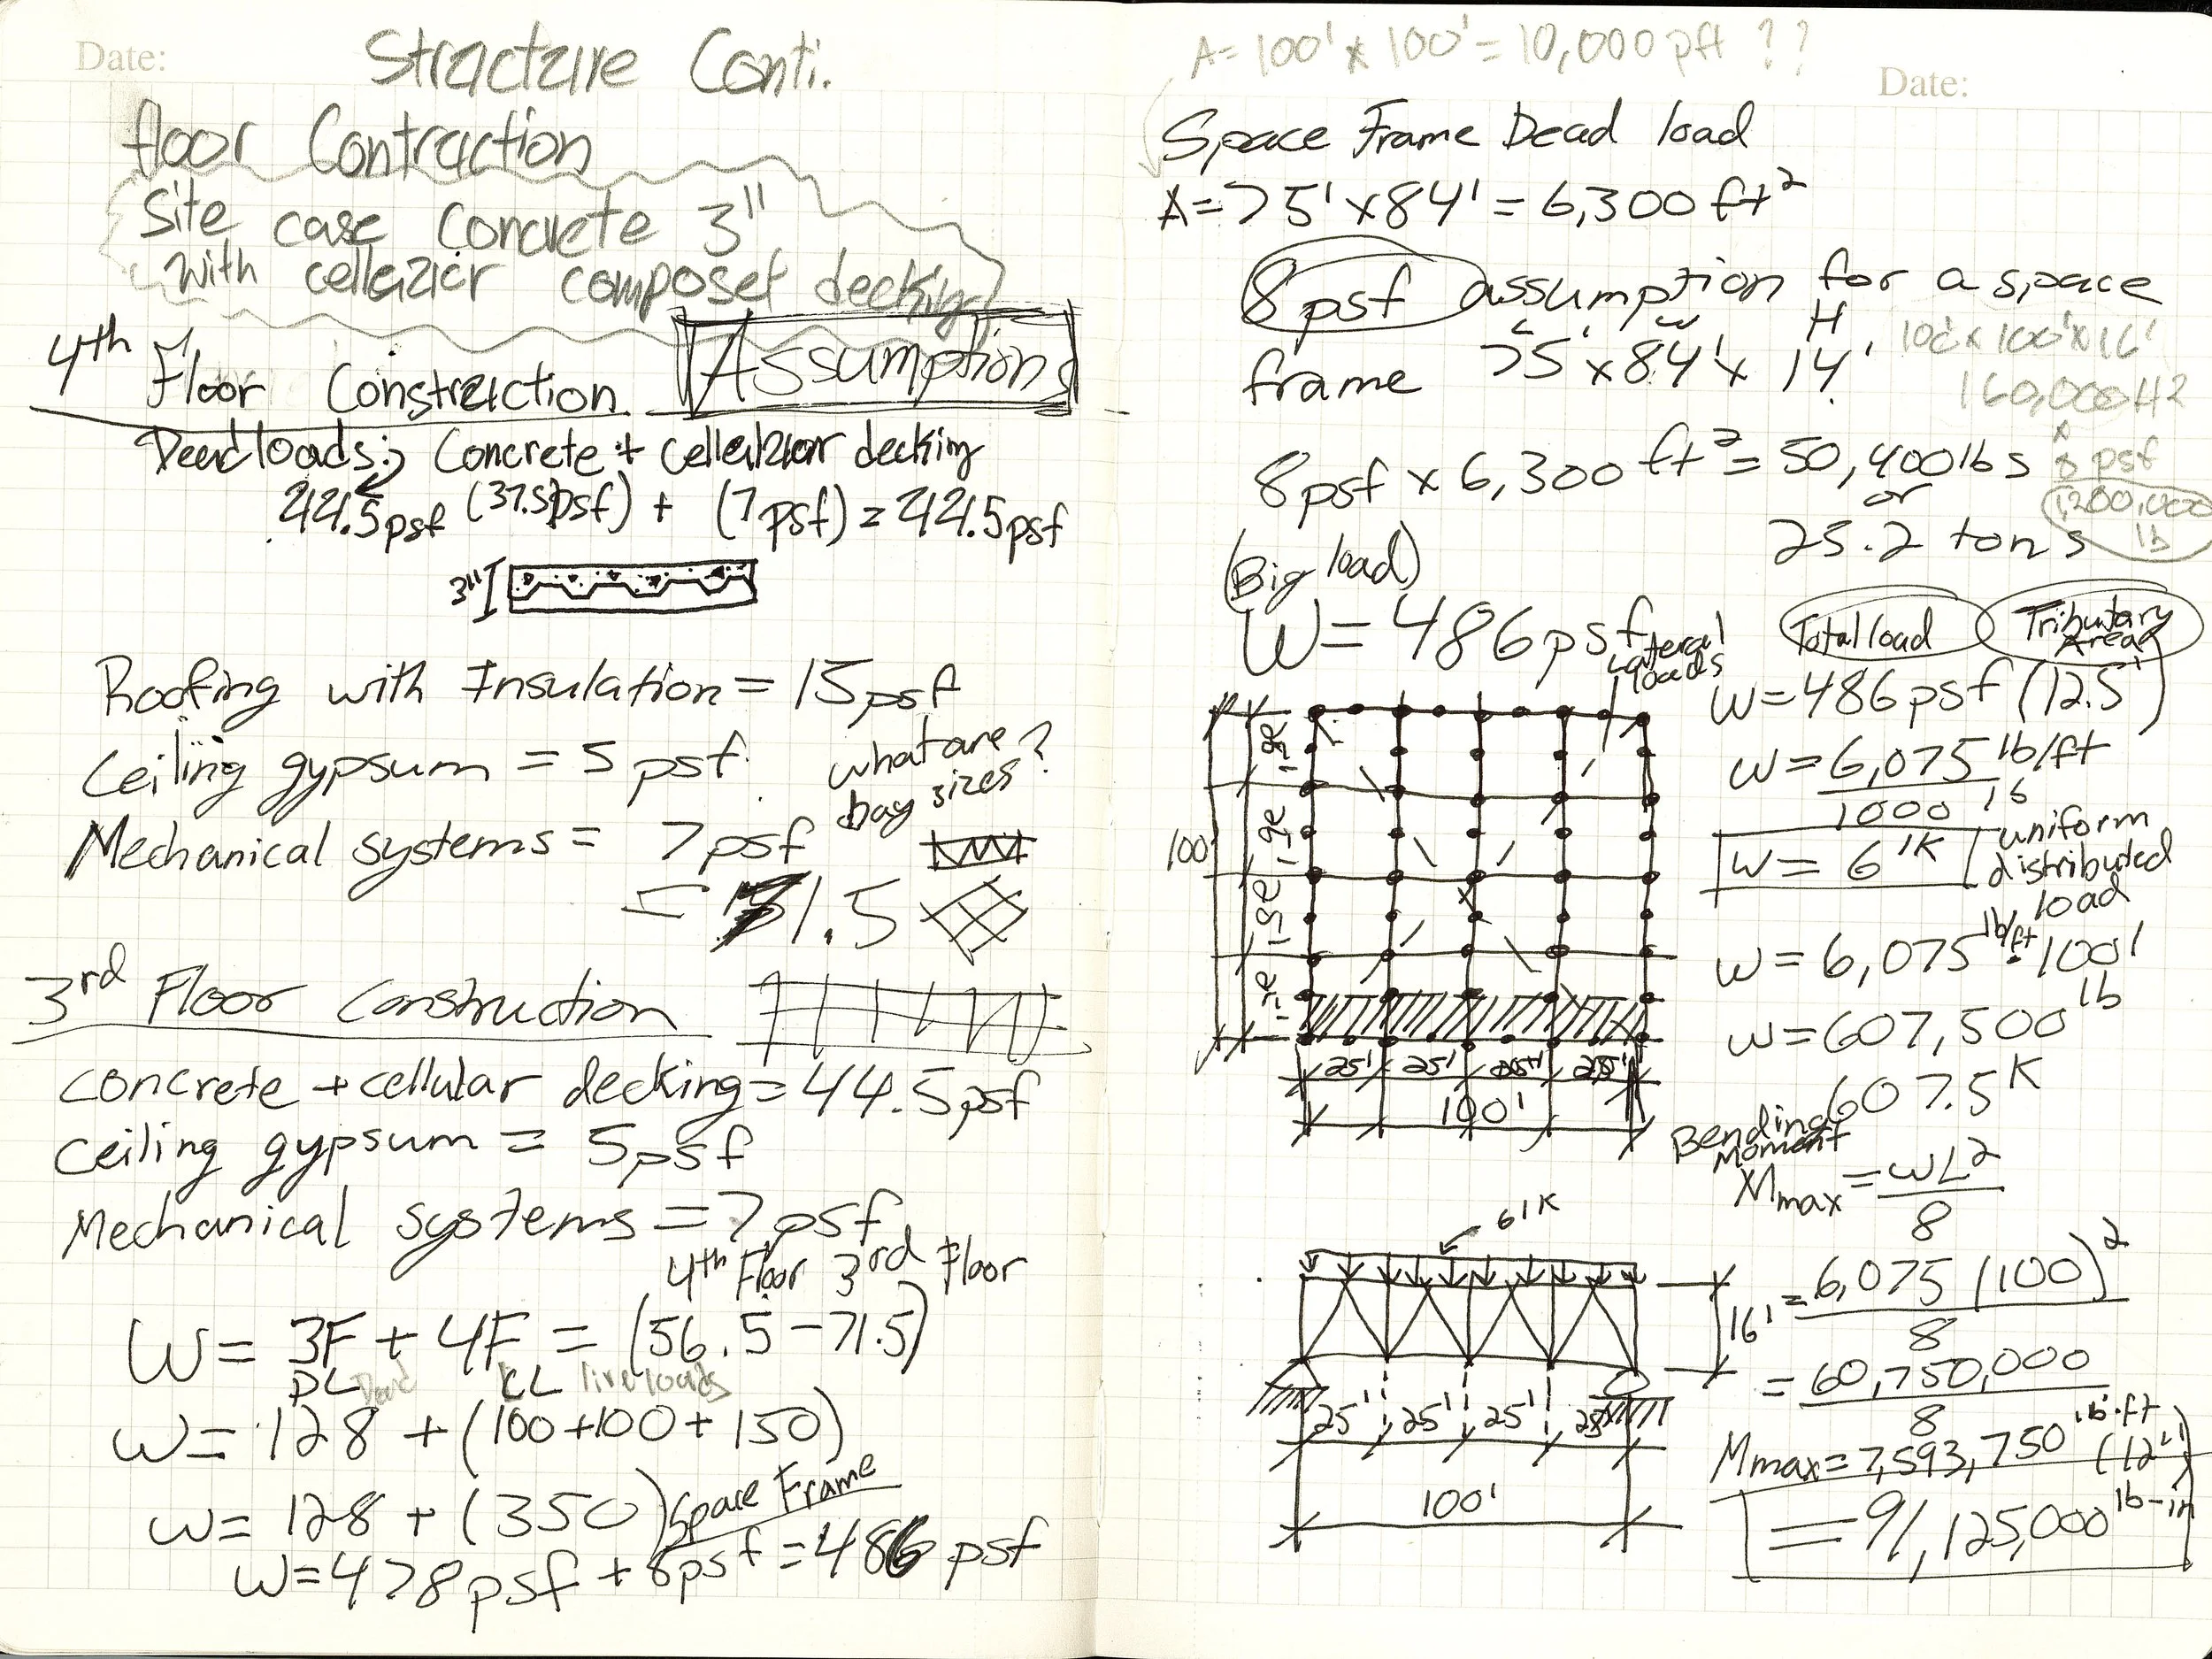 Date:
Structure Conti.
floor Contraction
Site case Concrete 3"
with cellular composet decking
Assumptions
4th Floor Construction
Dead loads: Concrete + cellular decking
44.5psf (37.5psf) + (7psf) = 44.5psf
3"
Roofing with Insulation = 15psf
Ceiling gypsum = 5 psf
what are bay sizes?
Mechanical systems = 7psf
= 71.5
3rd Floor Construction
concrete + cellular decking = 44.5psf
ceiling gypsum = 5psf
Mechanical systems = 7psf
4th Floor 3rd Floor
W = 3F + 4F = (56.5-71.5)
DL Dead LL live loads
W = 128 + (100+100+150)
W = 128 + (350) Space Frame
W = 478psf + 8psf = 486 psf
A = 100' x 100' = 10,000 pft ??
Date:
Space Frame Dead load
A = 75' x 84' = 6,300 ft²
8psf assumption for a space
L W H
frame 75' x 84' x 14'
100' x 100' x 16'
160,000 ft2
x
8 psf
1,280,000
lb
8psf x 6,300 ft² = 50,400 lbs
or
25.2 tons
(Big load)
W = 486psf
Lateral
loads
Total load
Tributary
Area
W = 486psf (12.5')
W = 6,075 lb/ft
1000 lb
W = 6 1K
uniform
distributed
load
W = 6,075 lb/ft · 100'
W = 607,500 lb
607.5 K
100'
25' 25' 25' 25'
100'
Bending
Moment
Mmax = WL²
8
= 6,075 (100)²
8
= 60,750,000
8
Mmax = 7,593,750 lb·ft (12")
= 91,125,000 lb-in
61K
16'
25' 25' 25' 25'
100'